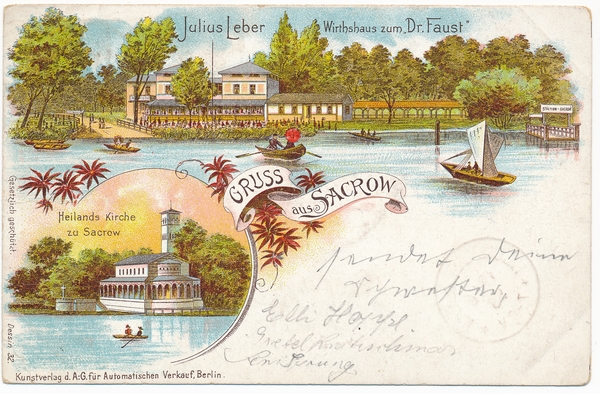 Julius Leber Wirthshaus zum „Dr. Faust"
STATION-SACROW
GRUSS
aus SACROW
Heilands Kirche
zu Sacrow
sendet Deine
Schwester.
Gesetzlich geschützt.
Dessin 32.
Kunstverlag d. A.-G. für Automatischen Verkauf, Berlin.